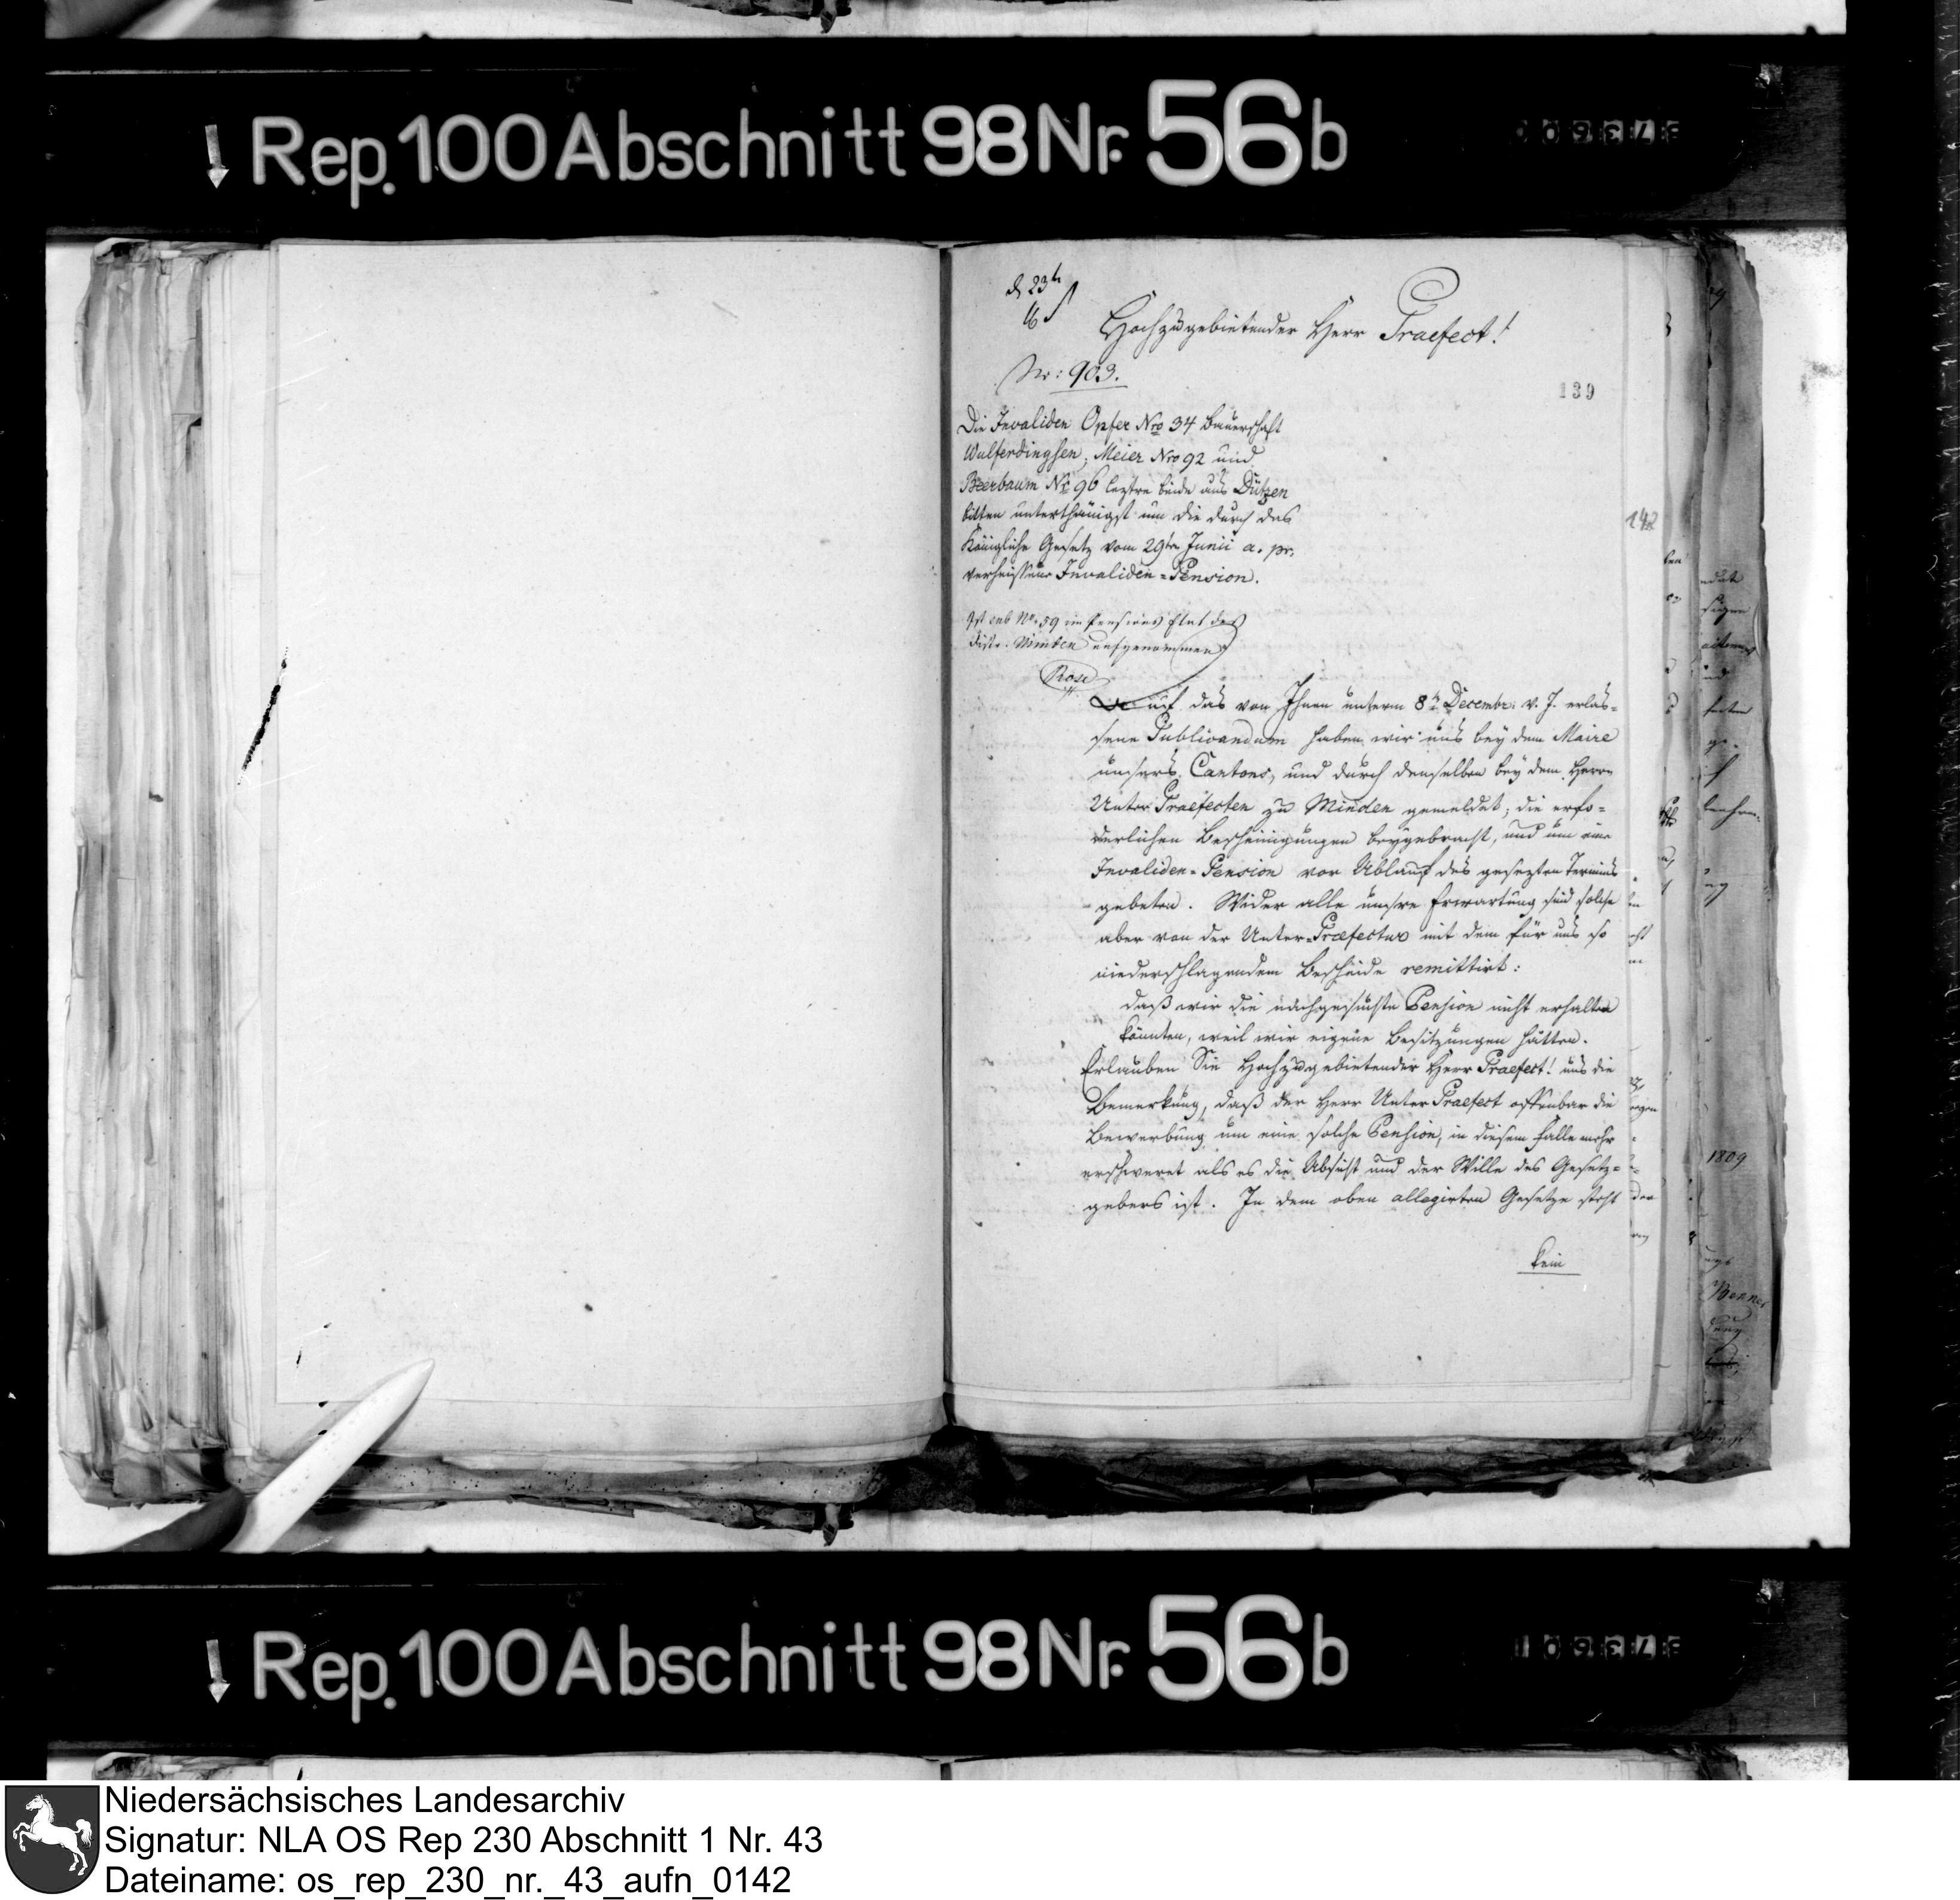 Rep. 100 Abschnitt 98 Nr. 56b
Hochzugebietender Herr Praefect!
Nr: 903.
139
Die Invaliden Opfer Nro 34 Bauerschaft
Wulferdingsen, Meier Nro 92 und
Beerbaum Nr 96 leztre beide aus Dützen
bitten unterthänigst um die durch das
Königliche Gesetz vom 29ten Junii a. pr.
verheissene Invaliden-Pension.
142
Ist sub No. 59 im Pensions Etat des
Distr. Minden aufgenommen
Rose
Auf das von Ihnen unterm 8ten Decembr. v. J. erlas-
sene Publicandum haben wir uns bey dem Maire
unsers Cantons, und durch denselben bey dem Herrn
Unter Praefecten zu Minden gemeldet, die erfo-
derlichen Bescheinigungen beygebracht, und um eine
Invaliden-Pension vor Ablauf des gesezten Termins
gebeten. Wider alle unsre Erwartung sind solche
aber von der Unter-Præfectur mit dem für uns so
niederschlagendem Bescheide remittirt:
daß wir die nachgesuchte Pension nicht erhalten
könnten, weil wir eigene Besitzungen hätten.
Erlauben Sie Hochzugebietender Herr Praefect! uns die
Bemerkung, daß der Herr Unter Praefect offenbar die
Bewerbung um eine solche Pension, in diesem Falle mehr
erschweret als es die Absicht und der Wille des Gesetz-
gebers ist. In dem oben allegirten Gesetze steht
kein
1809
Rep. 100 Abschnitt 98 Nr. 56b
Niedersächsisches Landesarchiv
Signatur: NLA OS Rep 230 Abschnitt 1 Nr. 43
Dateiname: os_rep_230_nr._43_aufn_0142